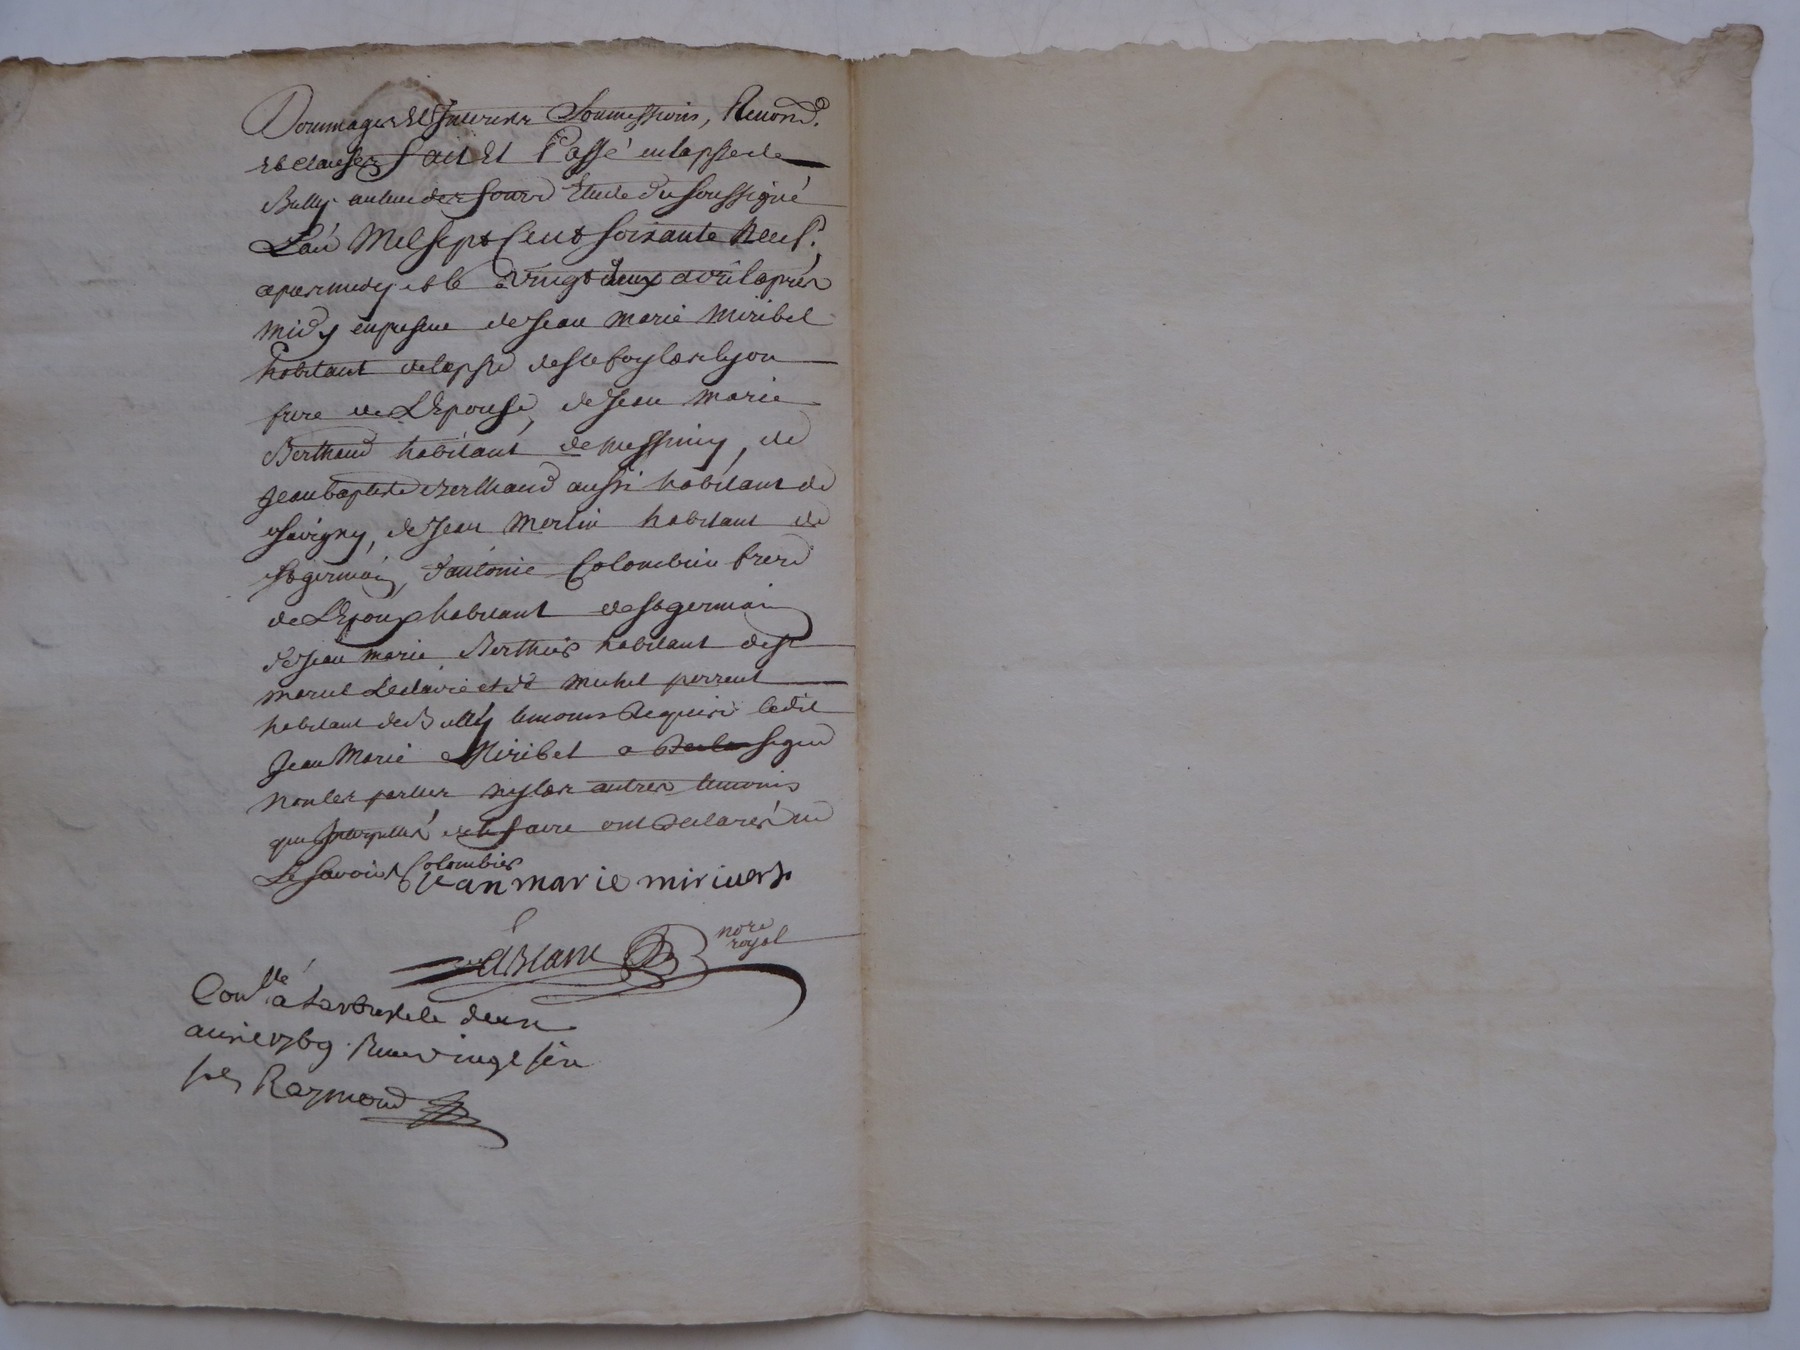 Dommages Et Interests Soumissions, Renond.
Et clauses fait Et Passé en la psse de
Bully au lieu des fours Etude du soussigné
L'an Mil sept Cent soixante Neuf.
apres midy et le vingt deux avril après
midy en presence de Jean Marie Miribel
habitant de la psse de ste foy les lyon
frere de L'Epouse, de Jean Marie
Berthaud habitant de messimy, de
Jean baptiste Berthaud aussi habitant de
Savigny, de Jean Merlin habitant de
st germain, d'antoine Colombier frere
de L'Epoux habitant de st germain
de Jean marie Berthier habitant de st
marcel Leclairé et de michel perreut
habitant de Bully temoins Requis ledit
Jean Marie Miribel a signé
non les parties ny les autres temoins
que Interpellés de le faire ont Declarés ne
Le savoir Colombier
jean marie miriuers
LeBlanc nore
royal
Conlle a Larbresle le deux
auril 1769. Reçu vingt six
sols Raymond